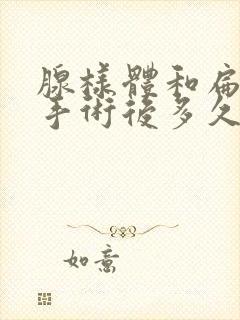 腺樣體和扁
手術後多久
如意